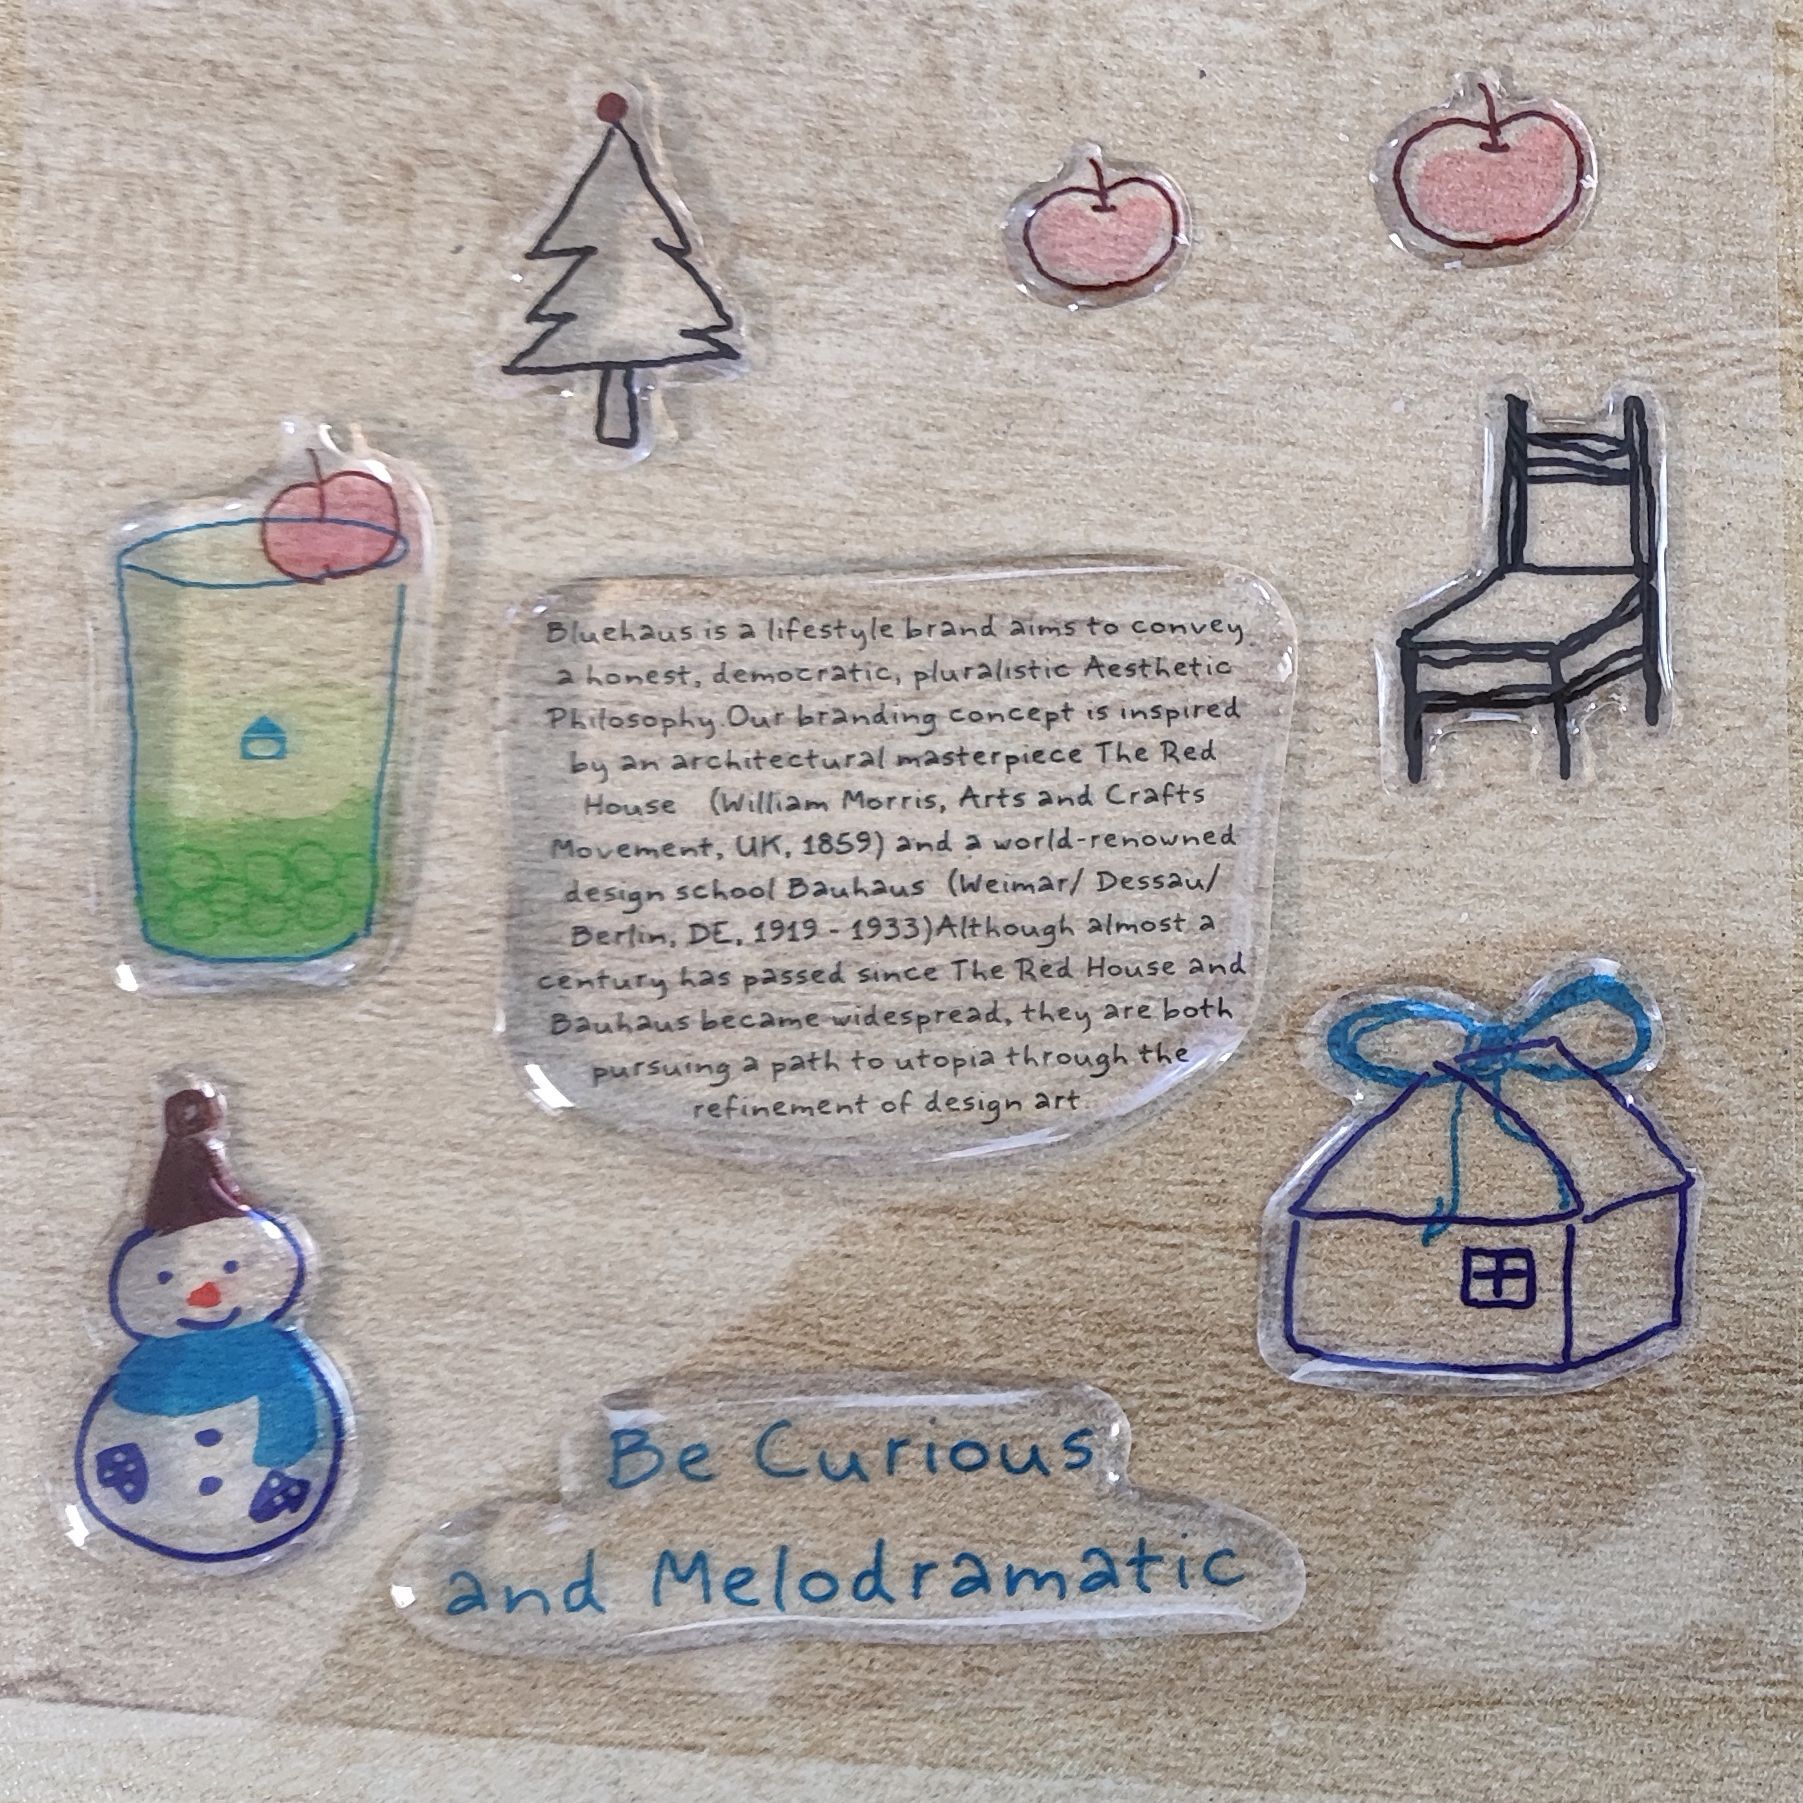 Bluehaus is a lifestyle brand aims to convey
a honest, democratic, pluralistic Aesthetic
Philosophy.Our branding concept is inspired
by an architectural masterpiece The Red
House (William Morris, Arts and Crafts
Movement, UK, 1859) and a world-renowned
design school Bauhaus (Weimar/ Dessau/
Berlin, DE, 1919 - 1933)Although almost a
century has passed since The Red House and
Bauhaus became widespread, they are both
pursuing a path to utopia through the
refinement of design art.
Be Curious
and Melodramatic